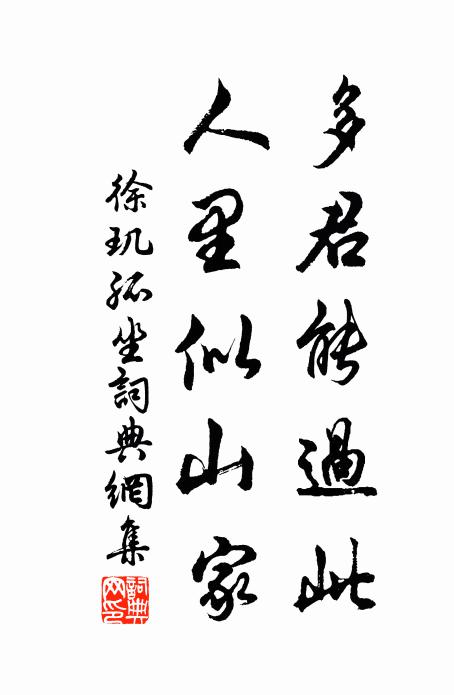 多君能過此
人里似山家
徐玑孤坐詞典網集
詞典網印